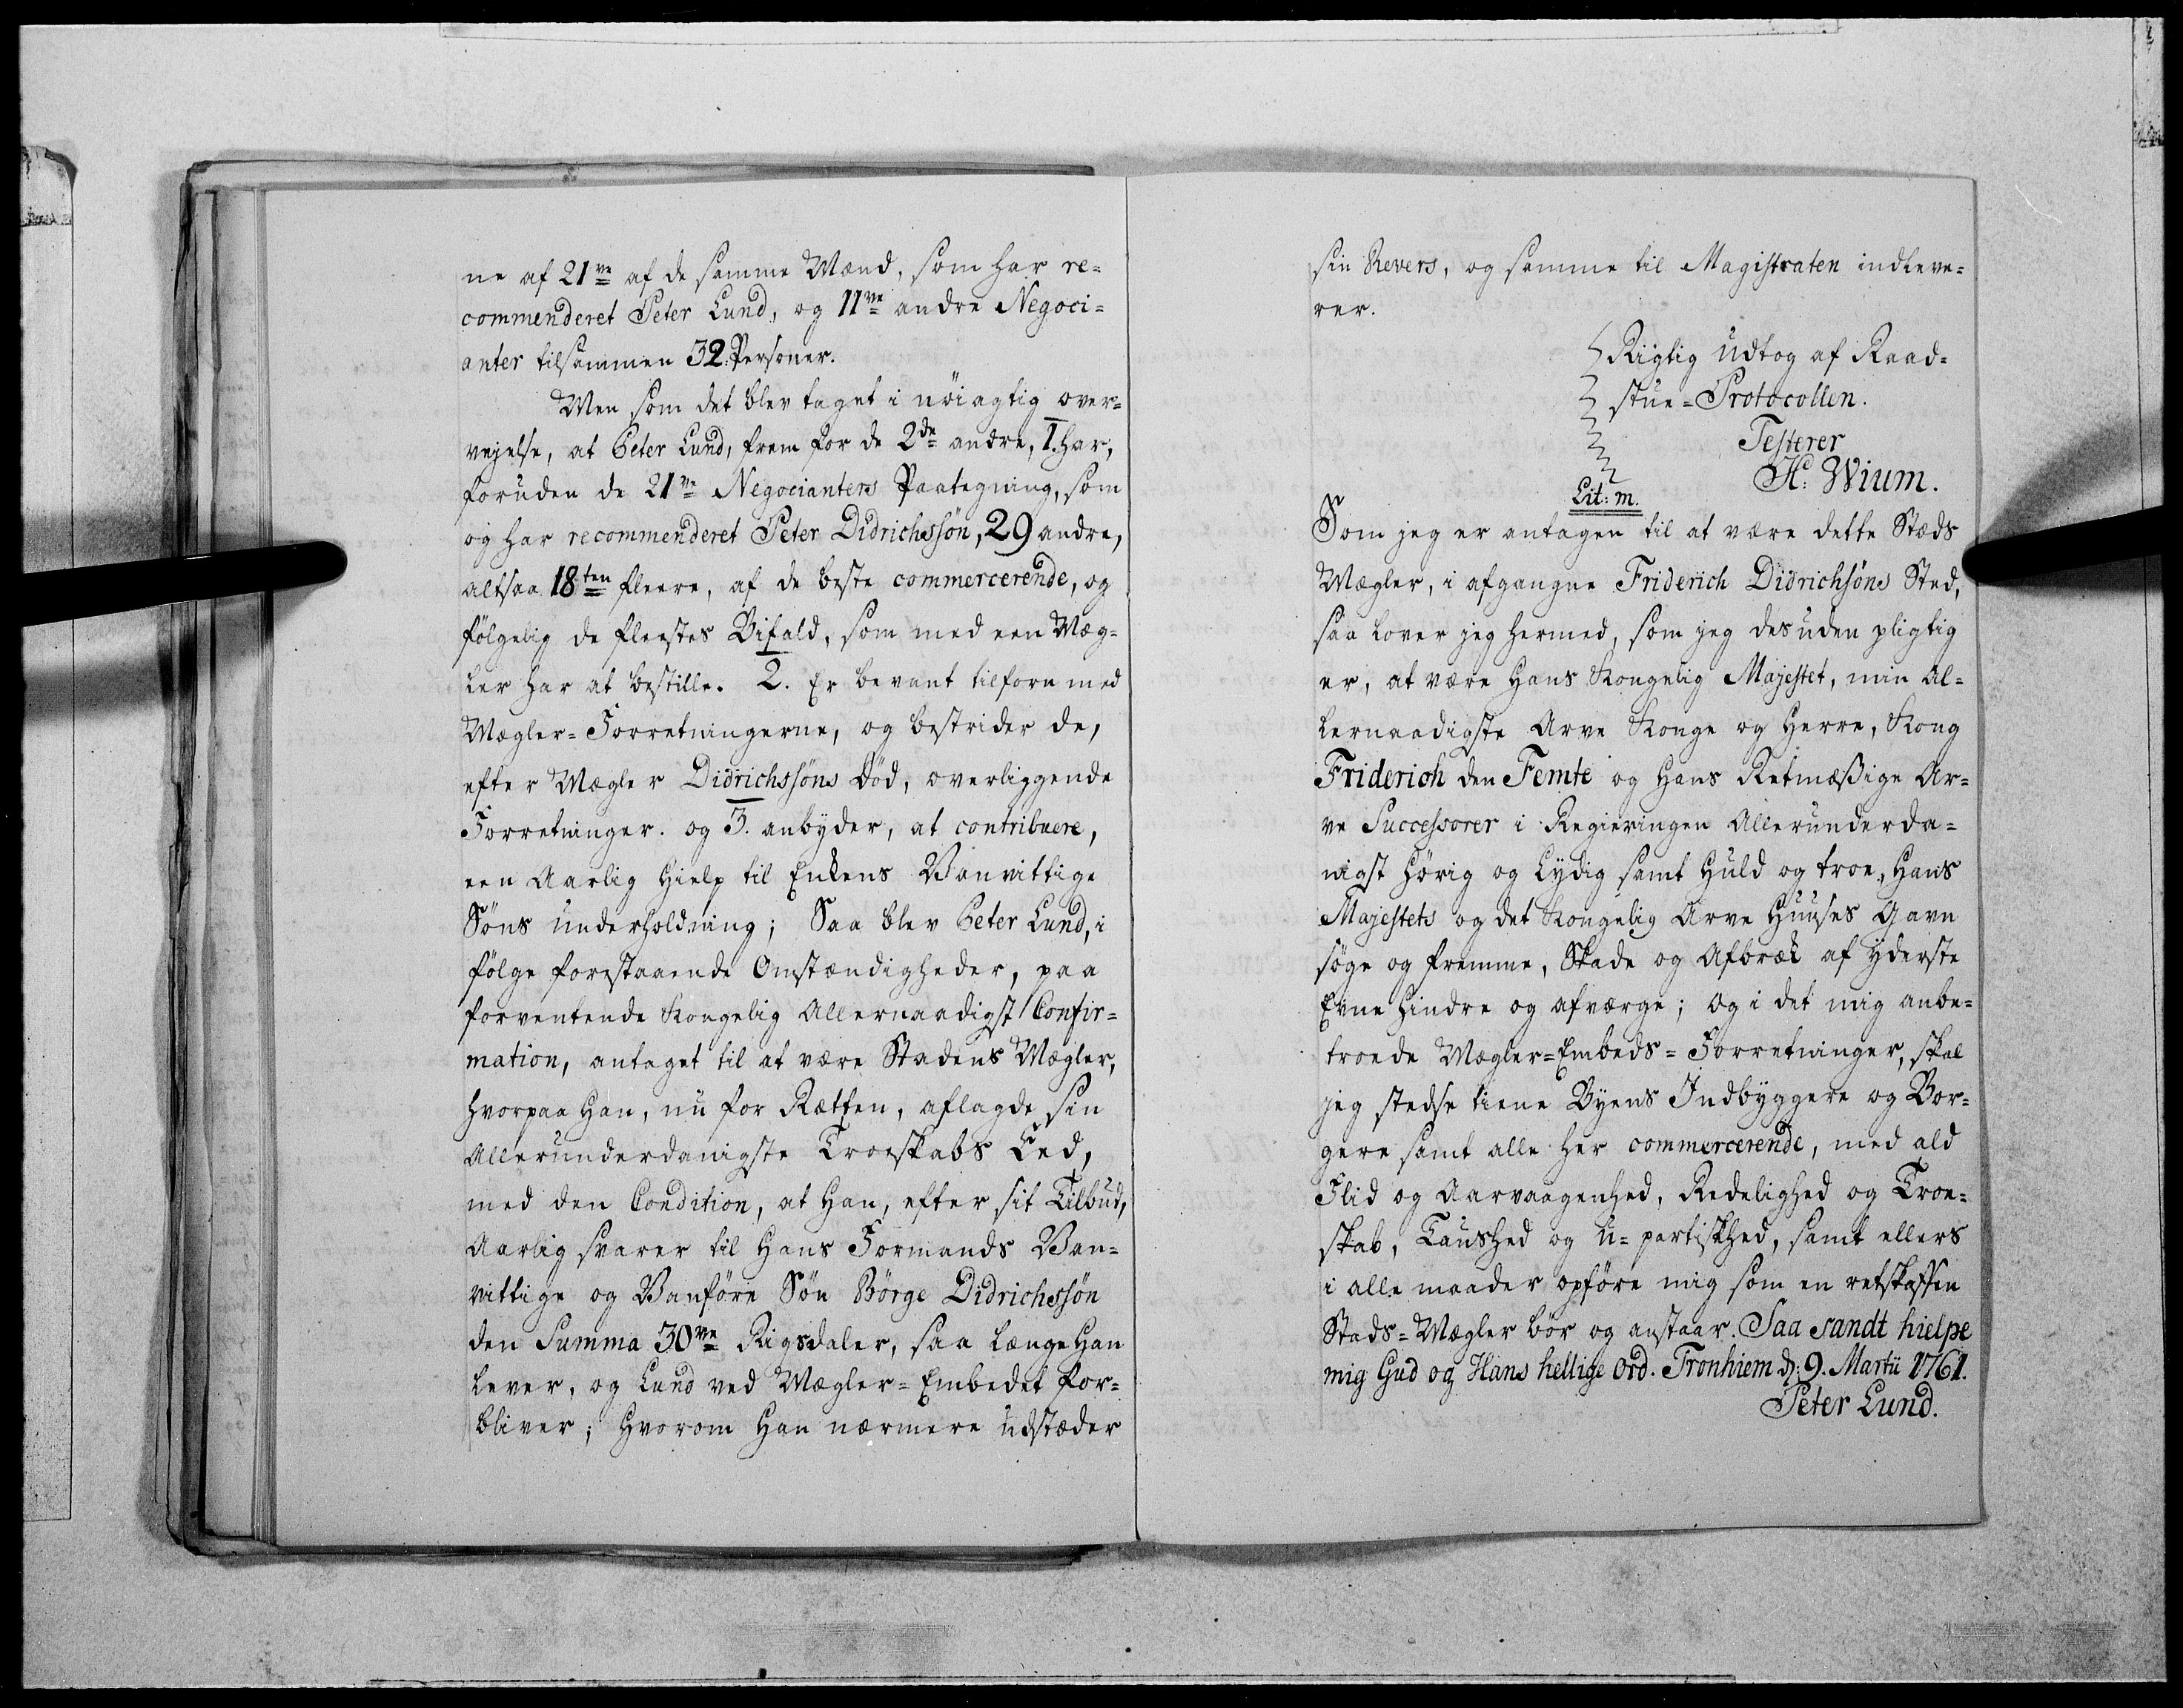 ne af 21ve af de samme Mænd, som har re=
commenderet Peter Lund, og 11ve andre Negoci=
anter tilsammen 32. Personer.
Men som det blev taget i nöiagtig over=
vejelse, at Peter Lund, frem for de 2de andre, 1. har,
foruden de 21ve Negocianters Paategning, som
og har recommenderet Peter Didrichssön, 29 andre,
altsaa 18ten fleere, af de beste commercerende, og
fölgelig de fleestes Bifald, som med een Mæg=
ler har at bestille. 2. Er bevant tilforn med
Mægler=Forretningerne, og bestrider de,
efter Mægler Didrichssöns Död, overliggende
Forretninger. og 3. anbyder, at contribuere,
een Aarlig Hielp til Enkens Vanvittige
Söns underholdning; Saa blev Peter Lund, i
fölge forestaaende Omstændigheder, paa
forventende Kongelig Allernaadigst Confir=
mation, antaget til at være Stadens Mægler,
hvorpaa Han, nu for Rætten, aflagde sin
Allerunderdanigste Troeskabs Eed,
med den Condition, at Han, efter sit Tilbud,
Aarlig svarer til Hans Formands Van=
vittige og Vanföre Sön Börge Didrichssön
den Summa 30ve Rigsdaler, saa længe Han
lever, og Lund ved Mægler=Embedet for=
bliver; hvorom Han nærmere udstæder
sin Revers, og samme til Magistraten indleve=
rer.
Rigtig udtog af Raad=
stue=Protocollen.
Testerer
H: Wium.
Lit: m.
Som jeg er antagen til at være dette Stæds
Mægler, i afgangne Friderich Didrichsöns Sted,
saa lover jeg hermed, som jeg des uden pligtig
er, at være Hans Kongelig Majestet, min Al=
lernaadigste Arve Konge og Herre, Kong
Friderich den Femte og Hans Retmæßige Ar=
ve Successorer i Regieringen Allerunderda=
nigst hörig og Lydig samt Huld og troe, Hans
Majestets og det Kongelig Arve Huuses Gavn
söge og fremme, Skade og Afbræk af yderste
Evne hindre og afværge; og i det mig anbe=
troede Mægler=Embeds=Forretninger, skal
jeg stedse tiene Byens Indbyggere og Bor=
gere samt alle her commercerende, med ald
Flid og Aarvaagenhed, Redelighed og Troe=
skab, Taushed og u=partiskhed, samt ellers
i alle maader opföre mig som en retskaffen
Stads=Mægler bör og anstaar. Saa sandt hielpe
mig Gud og Hans hellige ord. Tronhiem d: 9. Martii 1761.
Peter Lund.